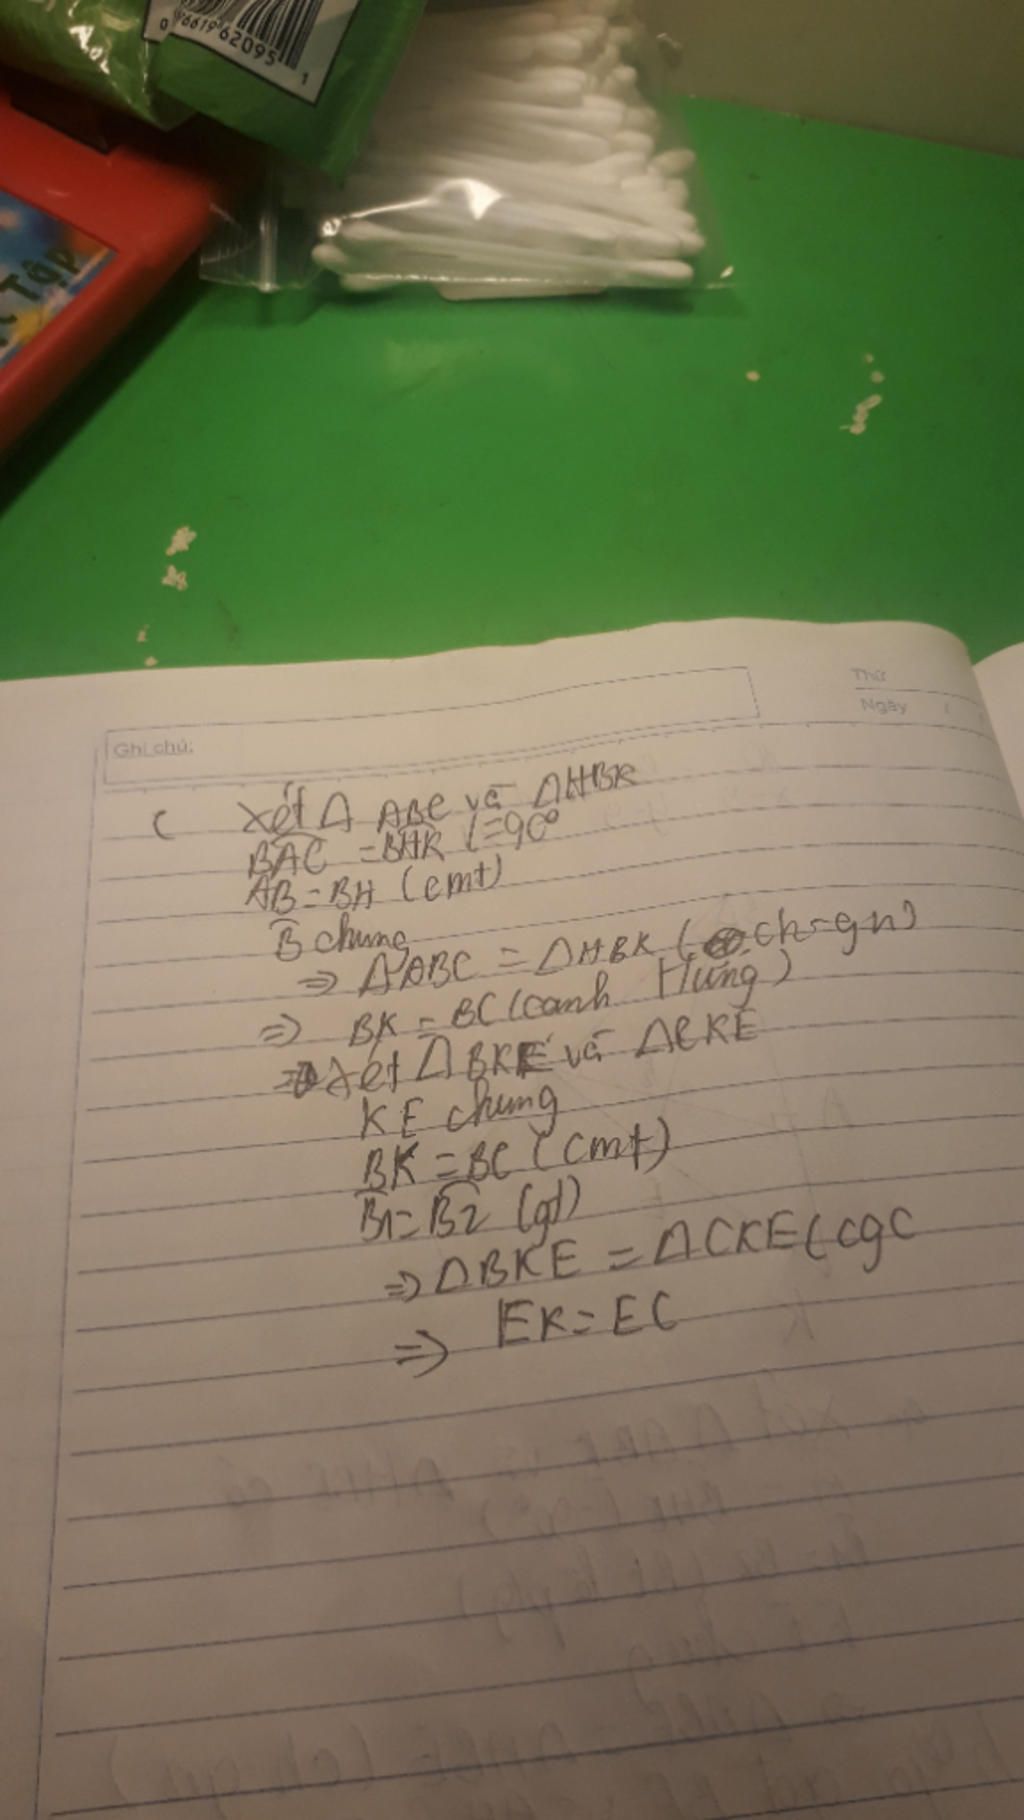 0 76619 62095 1
TẬP
Thứ
Ngày
Ghi chú:
c Xét Δ ABC và ΔHBK
BAC = BHK (=90°
AB = BH (cmt)
B chung
=> ΔABC = ΔHBK ( ch-gn)
=> BK = BC (canh Hưng)
=> Xét Δ BKE và ΔCKE
KE chung
BK = BC (cmt)
B1 = B2 (gt)
=> ΔBKE = ΔCKE (cgc
=> EK = EC